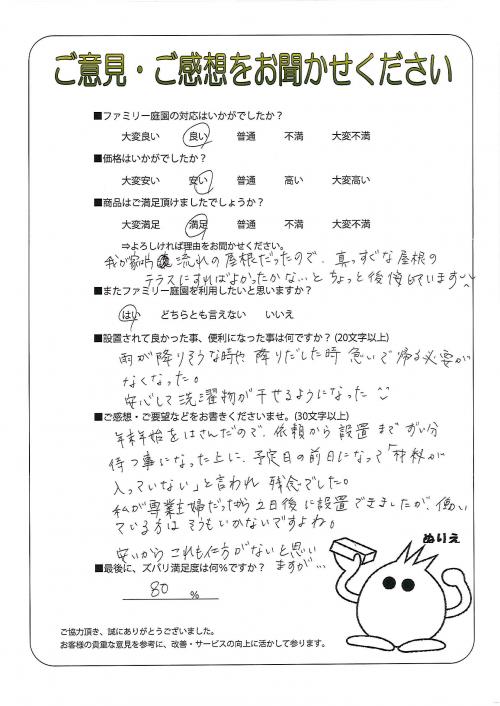 ご意見・ご感想をお聞かせください
■ファミリー庭園の対応はいかがでしたか？
大変良い 良い 普通 不満 大変不満
■価格はいかがでしたか？
大変安い 安い 普通 高い 大変高い
■商品はご満足頂けましたでしょうか？
大変満足 満足 普通 不満 大変不満
⇒よろしければ理由をお聞かせください。
我が家は 流れの屋根だったので、真っすぐな屋根の
テラスにすればよかったかな…と ちょっと後悔しています
■またファミリー庭園を利用したいと思いますか？
はい どちらとも言えない いいえ
■設置されて良かった事、便利になった事は何ですか？(20文字以上)
雨が降りそうな時や、降りだした時 急いで帰る必要が
なくなった。
安心して洗濯物が干せるようになった
■ご感想・ご要望などをお書きくださいませ。(30文字以上)
年末年始をはさんだので、依頼から設置まで ずい分
待つ事になった上に、予定日の前日になって「部材が
入っていない」と言われ 残念でした。
私が専業主婦だったから 2日後に設置できましたが、働い
ている方は そうもいかないですよね。
安いから これも仕方がないと思い
ますが…
■最後に、ズバリ満足度は何％ですか？
80 %
ぬりえ
ご協力頂き、誠にありがとうございました。
お客様の貴重な意見を参考に、改善・サービスの向上に活かして参ります。